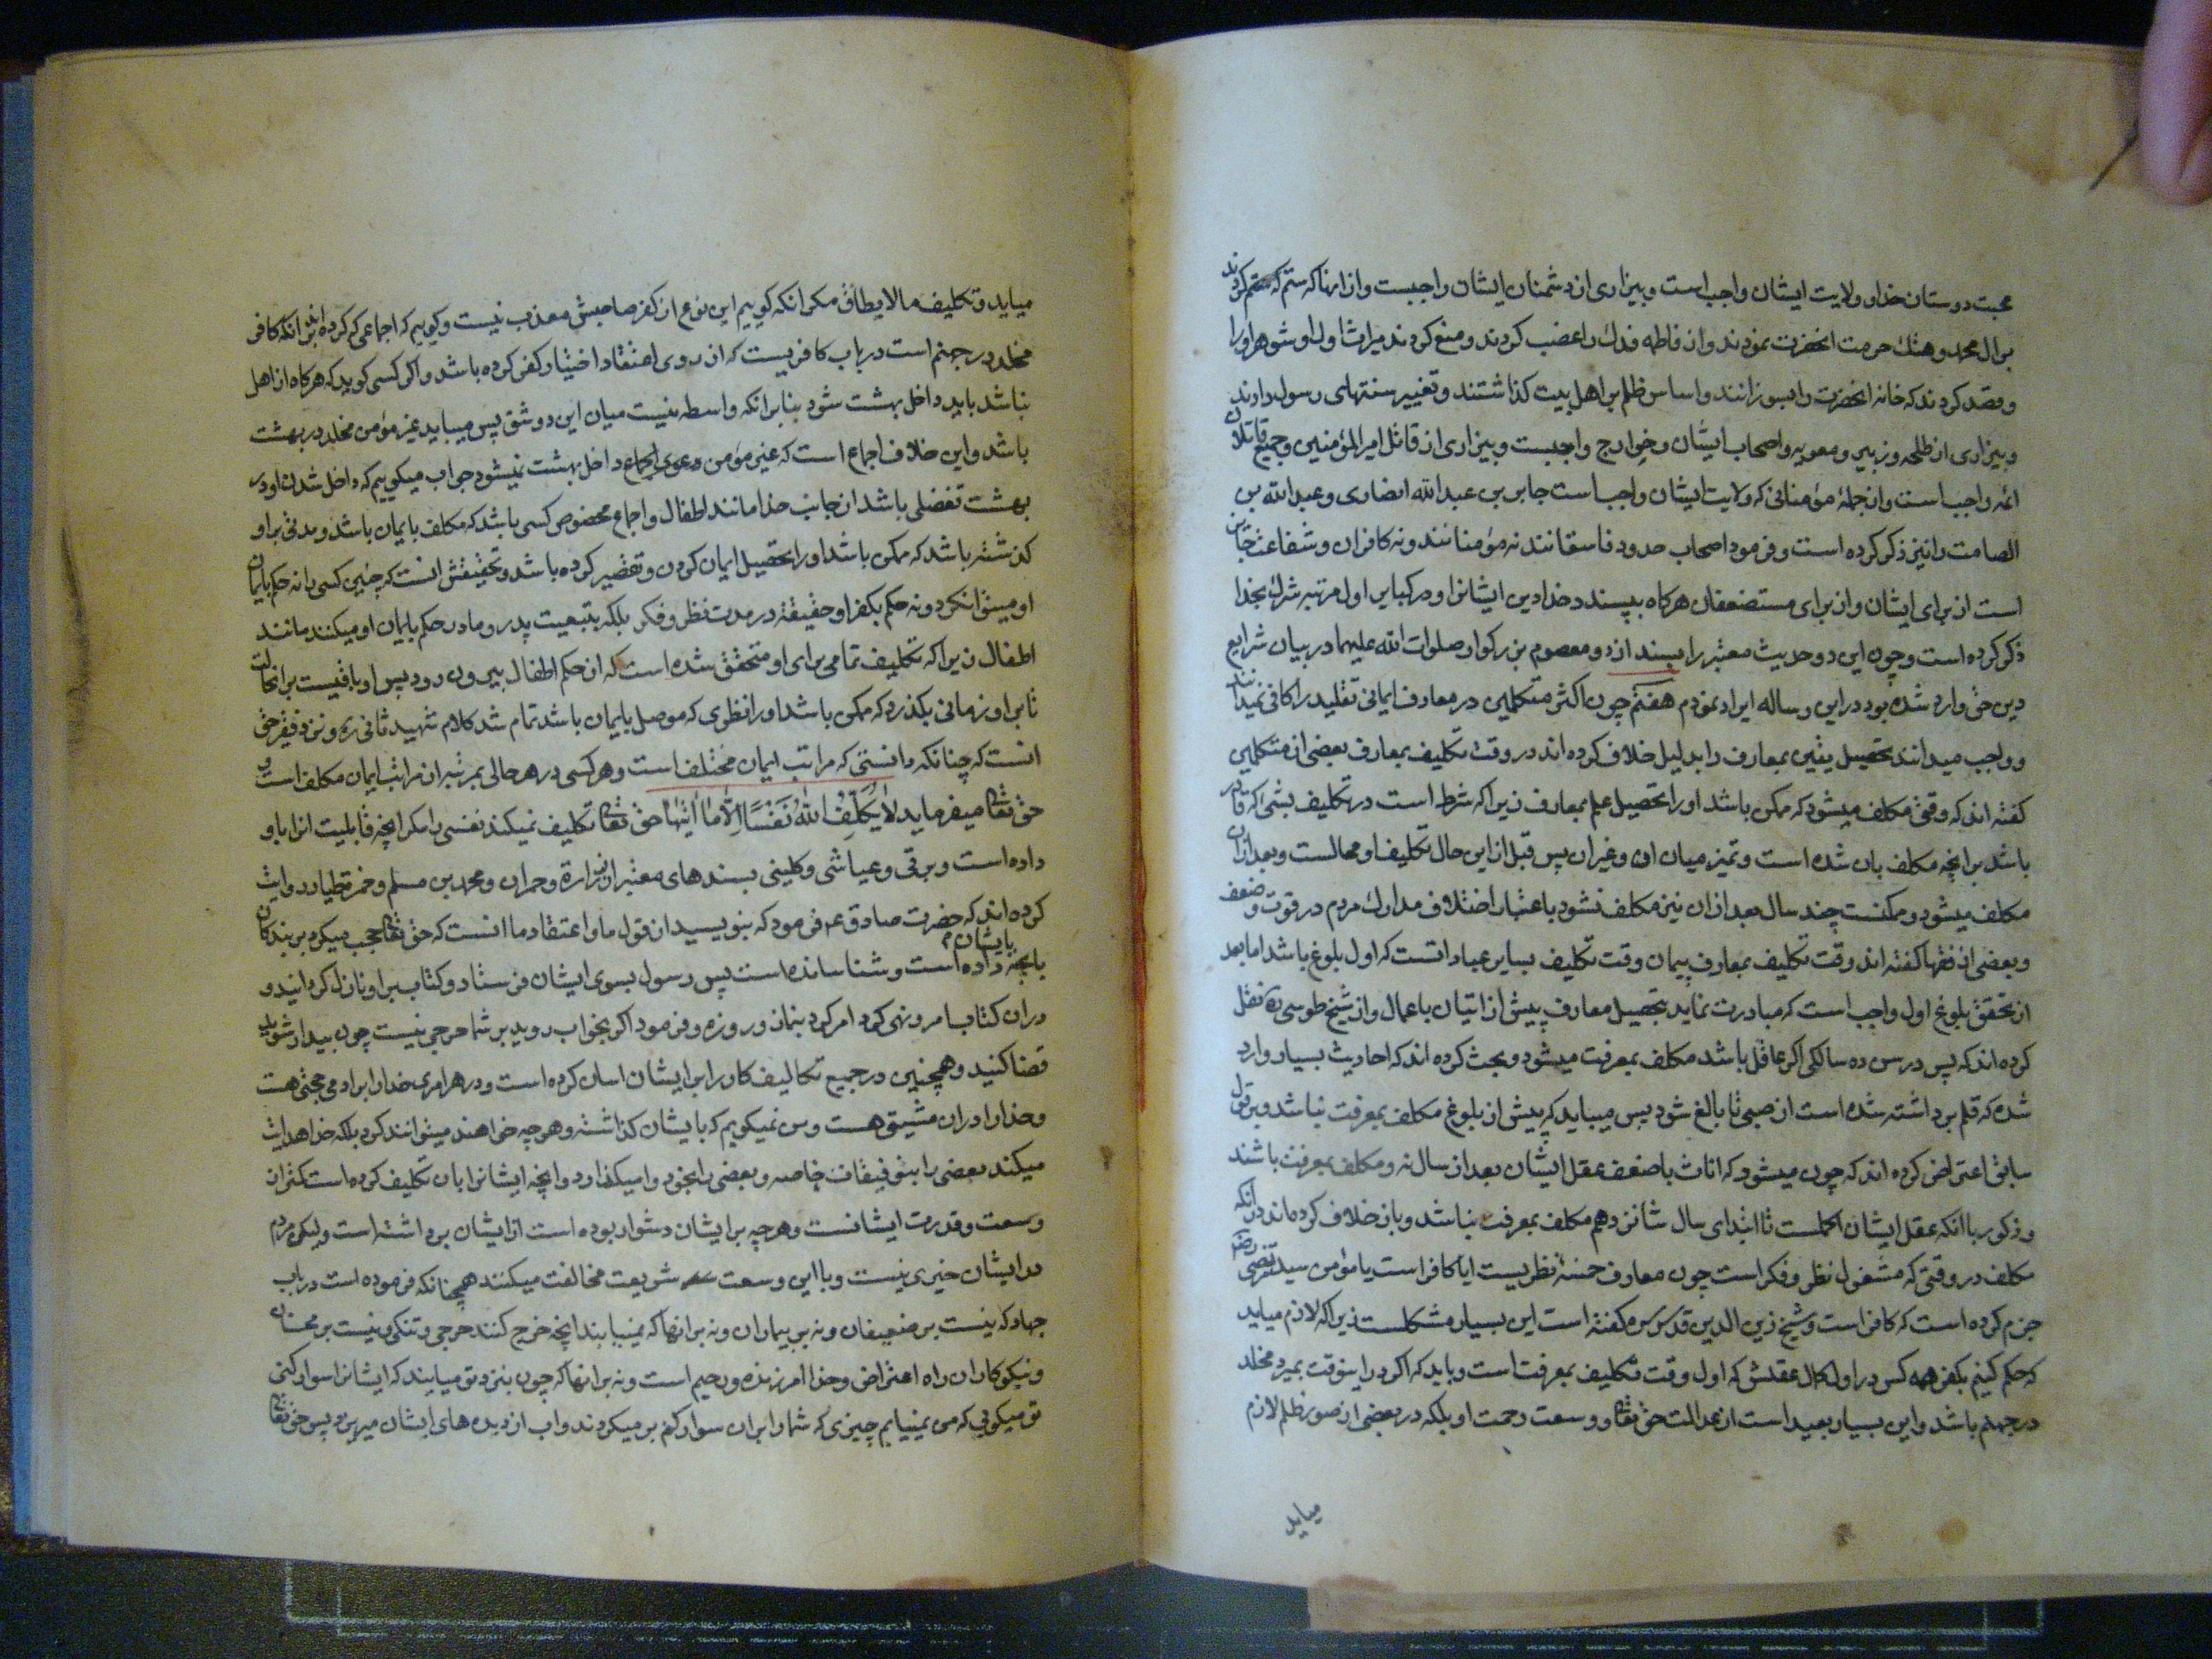 محبت دوستان خدا و ولایت ایشان واجب است و بیزاری از دشمنان ایشان واجبست و از انها که ستم کردند
بر ال محمد و هتك حرمت انحضرت نمودند و از فاطمه فدك را غضب کردند و منع کردند میراث او را و شوهر او را
و قصد کردند که خانه انحضرت را بسوزانند و اساس ظلم بر اهل بیت کذاشتند و تغییر سنتهای رسول دادند
و بیزاری از طلحه و زبیر و معویه و اصحاب ایشان و خوارج واجبست و بیزاری از قاتل امیرالمؤمنین و جمیع قاتلان
ائمه واجب است و از جملهٔ مؤمنانی که ولایت ایشان واجب است جابر بن عبدالله انصاری و عبدالله بن
الصامت را نیز ذکر کرده است و فرمود اصحاب حدود فاسقانند نه مؤمنانند و نه کافران و شفاعت جایز
است از برای ایشان و از برای مستضعفان هرکاه بپسندد خدا دین ایشانرا و در کبایر اول مرتبه شرك بخدا
ذکر کرده است و چون این دو حدیث معتبر را بسند از دو معصوم بزرکوار صلوات الله علیهما در بیان شرایع
دین حق وارد شده بود در این رساله ایراد نمودم هفتم چون اکثر متکلمین در معارف ایمانی تقلید را کافی نمیدانند
و واجب میدانند تحصیل یقین بمعارف را بدلیل خلاف کرده اند در وقت تکلیف بمعارف بعضی از متکلمین
کفته اند که وقتی مکلف میشود که ممکن باشد او را تحصیل علم بمعارف زیرا که شرط است در تکلیف بشئ که قادر
باشد بر انچه مکلف بان شده است و تمیز میان ان و غیر ان پس قبل از این حال تکلیف او محالست و بعد از ان
مکلف میشود و ممکنست چند سال بعد از ان نیز مکلف نشود باعتبار اختلاف مدارك مردم در قوت و ضعف
و بعضی از فقها کفته اند وقت تکلیف بمعارف ایمان وقت تکلیف بسایر عباداتست که اول بلوغ باشد اما بعد
از تحقق بلوغ اول واجب است که مبادرت نماید بتحصیل معارف پیش از اتیان باعمال و از شیخ طوسی ره نقل
کرده اند که پسر در سن ده سالکی اکر عاقل باشد مکلف بمعرفت میشود و بحث کرده اند که احادیث بسیار وارد
شده که قلم برداشته شده است از صبی تا بالغ شود پس میباید که پیش از بلوغ مکلف بمعرفت نباشد و بر قول
سابق اعتراض کرده اند که چون میشود که اناث با ضعف عقل ایشان بعد از سال نه و مکلف بمعرفت باشند
و ذکور با انکه عقل ایشان اکملست تا ابتدای سال شانزدهم مکلف بمعرفت نباشد و باز خلاف کرده اند در انکه
مکلف در وقتی که مشغول نظر و فکر است چون معارف خمسهٔ نظریست ایا کافر است یا مؤمن سید مرتضی رضه
جزم کرده است که کافر است و شیخ زین الدین قدس سره کفته است این بسیار مشکلست زیرا که لازم میاید
که حکم کنیم بکفر همه کس در اول کمال عقلش که اول وقت تکلیف بمعرفت است و باید که اکر در اینوقت بمیرد مخلد
در جهنم باشد و این بسیار بعید است از عدالت حق تعالی و وسعت رحمت او بلکه در بعضی از صور ظلم لازم
میاید
میاید و تکلیف ما لا یطاق مکر انکه کوییم این نوع از کفر صاحبش معذب نیست و کوییم که اجماعی که کرده اند بر انکه کافر
مخلد در جهنم است در باب کافریست که از روی اعتقاد اختیار کفر کرده باشد و اکر کسی کوید که هرکاه از اهل
نباشد باید داخل بهشت شود بنابر انکه واسطه نیست میان این دو شق پس میباید غیر مؤمن مخلد در بهشت
باشد و این خلاف اجماع است که غیر مؤمن داخل بهشت نمیشود جواب میکوییم که داخل شدن او در
بهشت تفضلی باشد از جانب خدا مانند اطفال و اجماع مخصوص کسی باشد که مکلف بایمان باشد و مدتی بر او
کذشته باشد که ممکن باشد او را تحصیل ایمان کردن و تقصیر کرده باشد و تحقیقش انست که چنین کسی را نه حکم بایمان
او میتوان کرد و نه حکم بکفر او حقیقة در مدت نظر و فکر بلکه بتبعیت پدر و مادر حکم بایمان او میکنند مانند
اطفال زیرا که تکلیف تمامی برای او متحقق نشده است که از حکم اطفال بیرون رود پس او باقیست بر انحالت
تا بر او زمانی بکذرد که ممکن باشد او را نظری که موصل بایمان باشد تمام شد کلام شهید ثانی ره و نزد فقیر حق
انست که چنانکه دانستی که مراتب ایمان مختلف است و هرکسی در هر حالی بمرتبه از مراتب ایمان مکلف است و
حق تعالی میفرماید لا یُکَلِّفُ اللهُ نَفْسًا اِلّا ما اٰتٰیها حق تعالی تکلیف نمیکند نفسی را مکر انچه قابلیت انرا باو
داده است و برقی و عیاشی و کلینی بسندهای معتبر از زراره و حمران و محمد بن مسلم و حمزه طیار روایت
کرده اند که حضرت صادق ع فرمود که بنویسید از قول ما و اعتقاد ما انست که حق تعالی حجت میکیرد بر بندکان
بانچه بایشان داده است و شناسانده است پس رسول بسوی ایشان فرستاد و کتاب بر او نازل کردانید و
در ان کتاب امر و نهی کرد امر کرد بنماز و روزه و فرمود اکر بخواب روید بر شما حرجی نیست چون بیدار شوید
قضا کنید و همچنین در جمیع تکالیف کار را بر ایشان اسان کرده است و در هر امری خدا را بر ادمی حجتی هست
و خدا را در ان مشیتی هست و من نمیکویم که بایشان کذاشته و هر چه خواهند میتوانند کرد بلکه خدا هدایت
میکند بعضی را بتوفیقات خاصه و بعضی را بخود وامیکذارد و انچه ایشانرا بان تکلیف کرده است کمتر از
وسعت و قدرت ایشانست و هرچه بر ایشان دشوار بوده است از ایشان برداشته است ولیکن مردم
در ایشان خیری نیست و با این وسعت شریعت مخالفت میکنند همچنانکه فرموده است در باب
جهاد که نیست بر ضعیفان و نه بر بیماران و نه بر انها که نمییابند انچه خرج کنند حرجی و تنکی و نیست بر محسنان
و نیکوکاران راه اعتراض و خدا امرزنده و رحیم است و نه بر انها که چون بنزد تو میایند که ایشانرا سوار کنی
تو میکویی که من نمییابم چیزی که شما را بر ان سوار کنم بر میکردند و اب از دیده های ایشان میریزد پس حق تعالی